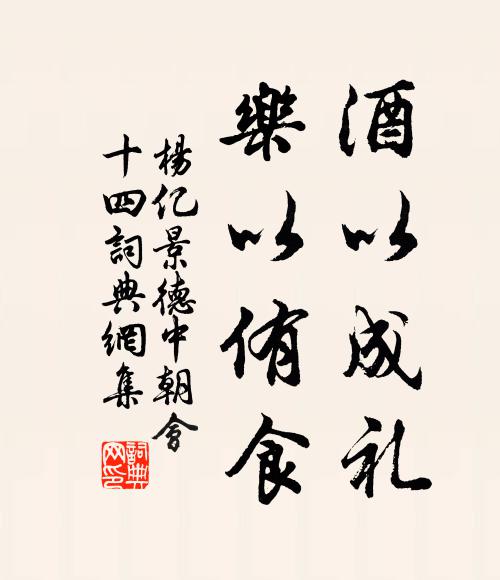 酒以成礼
樂以侑食
楊亿景德中朝會
十四詞典網集
詞典
网印